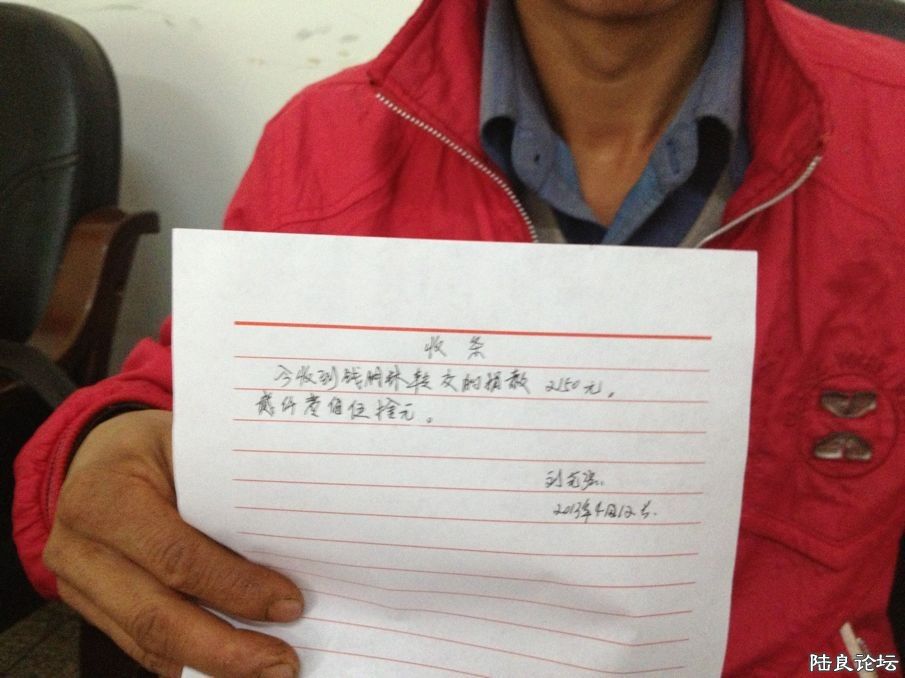 收 条
今收到钱明珠转交的捐款 2150元。
贰仟壹佰伍拾元。
刘
2013年4月12号.
陆良论坛